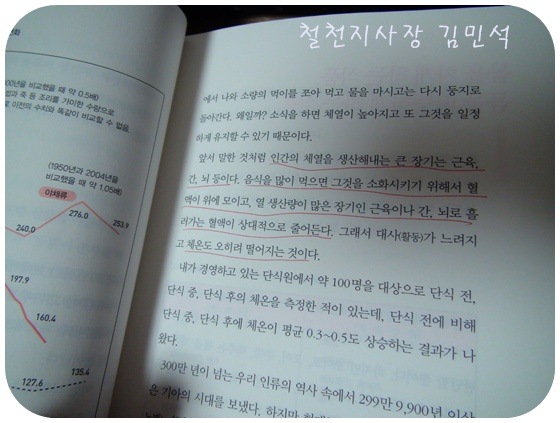 철천지사장 김민석
화
00년을 비교했을 때 약 0.5배)
법과 죽 등 조리를 가미한 수량으로
로 이전의 수치와 똑같이 비교할 수 없음.
(1950년과 2004년을
비교했을 때 약 1.05배)
야채류
276.0
253.9
240.0
197.9
160.4
135.4
127.6
에서 나와 소량의 먹이를 쪼아 먹고 물을 마시고는 다시 둥지로
돌아간다. 왜일까? 소식을 하면 체열이 높아지고 또 그것을 일정
하게 유지할 수 있기 때문이다.
앞서 말한 것처럼 인간의 체열을 생산해내는 큰 장기는 근육,
간, 뇌 등이다. 음식을 많이 먹으면 그것을 소화시키기 위해서 혈
액이 위에 모이고, 열 생산량이 많은 장기인 근육이나 간, 뇌로 흘
러가는 혈액이 상대적으로 줄어든다. 그래서 대사(활동)가 느려지
고 체온도 오히려 떨어지는 것이다.
내가 경영하고 있는 단식원에서 약 100명을 대상으로 단식 전,
단식 중, 단식 후의 체온을 측정한 적이 있는데, 단식 전에 비해
단식 중, 단식 후에 체온이 평균 0.3~0.5도 상승하는 결과가 나
왔다.
300만 년이 넘는 우리 인류의 역사 속에서 299만 9,900년 이상
은 기아의 시대를 보냈다. 하지만